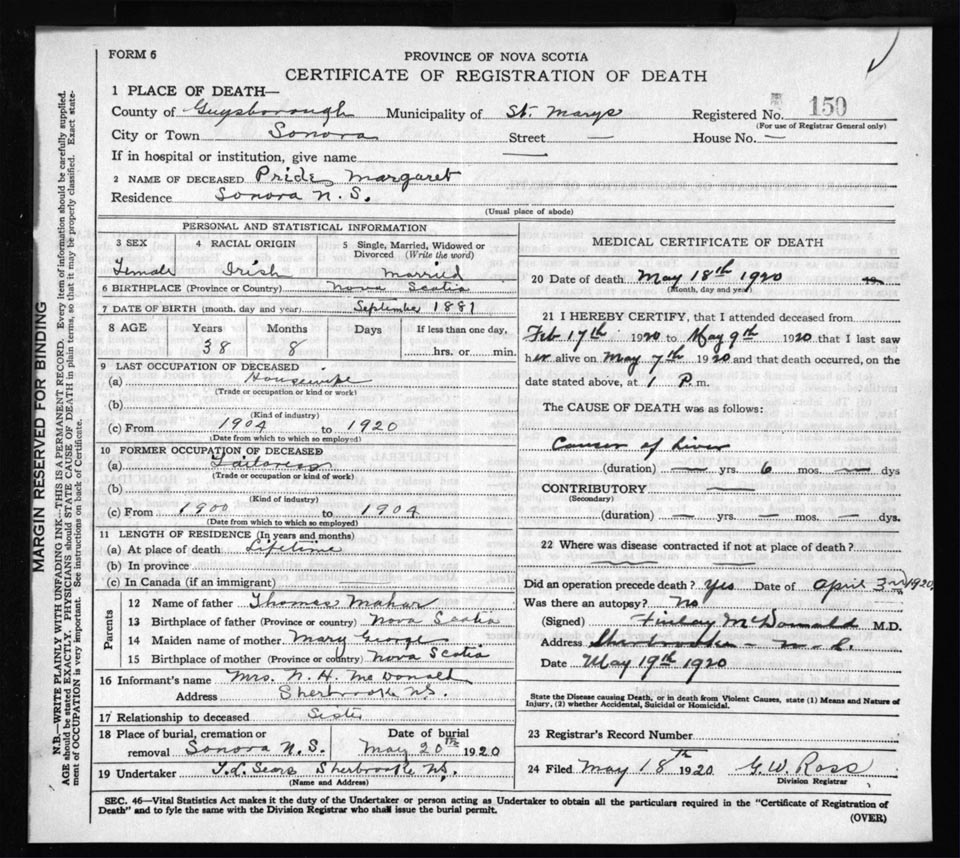 FORM 6
PROVINCE OF NOVA SCOTIA
CERTIFICATE OF REGISTRATION OF DEATH
1 PLACE OF DEATH—
County of Guysborough Municipality of St. Marys Registered No. 150
(For use of Registrar General only)
City or Town Sonora Street — House No. —
If in hospital or institution, give name —
2 NAME OF DECEASED Pride, Margaret
Residence Sonora N.S.
(Usual place of abode)
PERSONAL AND STATISTICAL INFORMATION
3 SEX 4 RACIAL ORIGIN 5 Single, Married, Widowed or Divorced (Write the word)
Female Irish Married
6 BIRTHPLACE (Province or Country) Nova Scotia
7 DATE OF BIRTH (month, day and year) September 1881
8 AGE Years Months Days If less than one day,
38 8 hrs. or min.
9 LAST OCCUPATION OF DECEASED
(a) Housewife
(Trade or occupation or kind of work)
(b)
(Kind of industry)
(c) From 1904 to 1920
(Date from which to which so employed)
10 FORMER OCCUPATION OF DECEASED
(a) Tailoress
(Trade or occupation or kind of work)
(b)
(Kind of industry)
(c) From 1900 to 1904
(Date from which to which so employed)
11 LENGTH OF RESIDENCE (In years and months)
(a) At place of death Lifetime
(b) In province
(c) In Canada (if an immigrant) —
Parents
12 Name of father Thomas Mahar
13 Birthplace of father (Province or country) Nova Scotia
14 Maiden name of mother Mary George
15 Birthplace of mother (Province or country) Nova Scotia
16 Informant's name Mrs. N. H. McDonald
Address Sherbrooke N.S.
17 Relationship to deceased Sister
18 Place of burial, cremation or removal Sonora N.S. Date of burial May 20th 1920
19 Undertaker J.L. Sears Sherbrooke N.S.
(Name and Address)
MEDICAL CERTIFICATE OF DEATH
20 Date of death May 18th 1920 19
(Month, day and year)
21 I HEREBY CERTIFY, that I attended deceased from
Feb 17th 1920 to May 9th 1920 that I last saw
her alive on May 7th 1920 and that death occurred, on the
date stated above, at 1 P. m.
The CAUSE OF DEATH was as follows:
Cancer of Liver
(duration) — yrs. 6 mos. — dys
CONTRIBUTORY —
(Secondary)
(duration) — yrs. — mos. — dys.
22 Where was disease contracted if not at place of death?
Did an operation precede death? Yes Date of April 3rd 1920
Was there an autopsy? No
(Signed) Finlay McDonald M.D.
Address Sherbrooke — N.S.
Date May 19th 1920
State the Disease causing Death, or in death from Violent Causes, state (1) Means and Nature of
Injury, (2) whether Accidental, Suicidal or Homicidal.
23 Registrar's Record Number
24 Filed May 18th 1920 G. W. Ross
Division Registrar
SEC. 46—Vital Statistics Act makes it the duty of the Undertaker or person acting as Undertaker to obtain all the particulars required in the "Certificate of Registration of
Death" and to fyle the same with the Division Registrar who shall issue the burial permit.
(OVER)
MARGIN RESERVED FOR BINDING
N.B.—WRITE PLAINLY WITH UNFADING INK—THIS IS A PERMANENT RECORD. Every item of information should be carefully supplied.
AGE should be stated EXACTLY. PHYSICIANS should STATE CAUSE OF DEATH in plain terms, so that it may be properly classified. Exact state-
ment of OCCUPATION is very important. See instructions on back of Certificate.